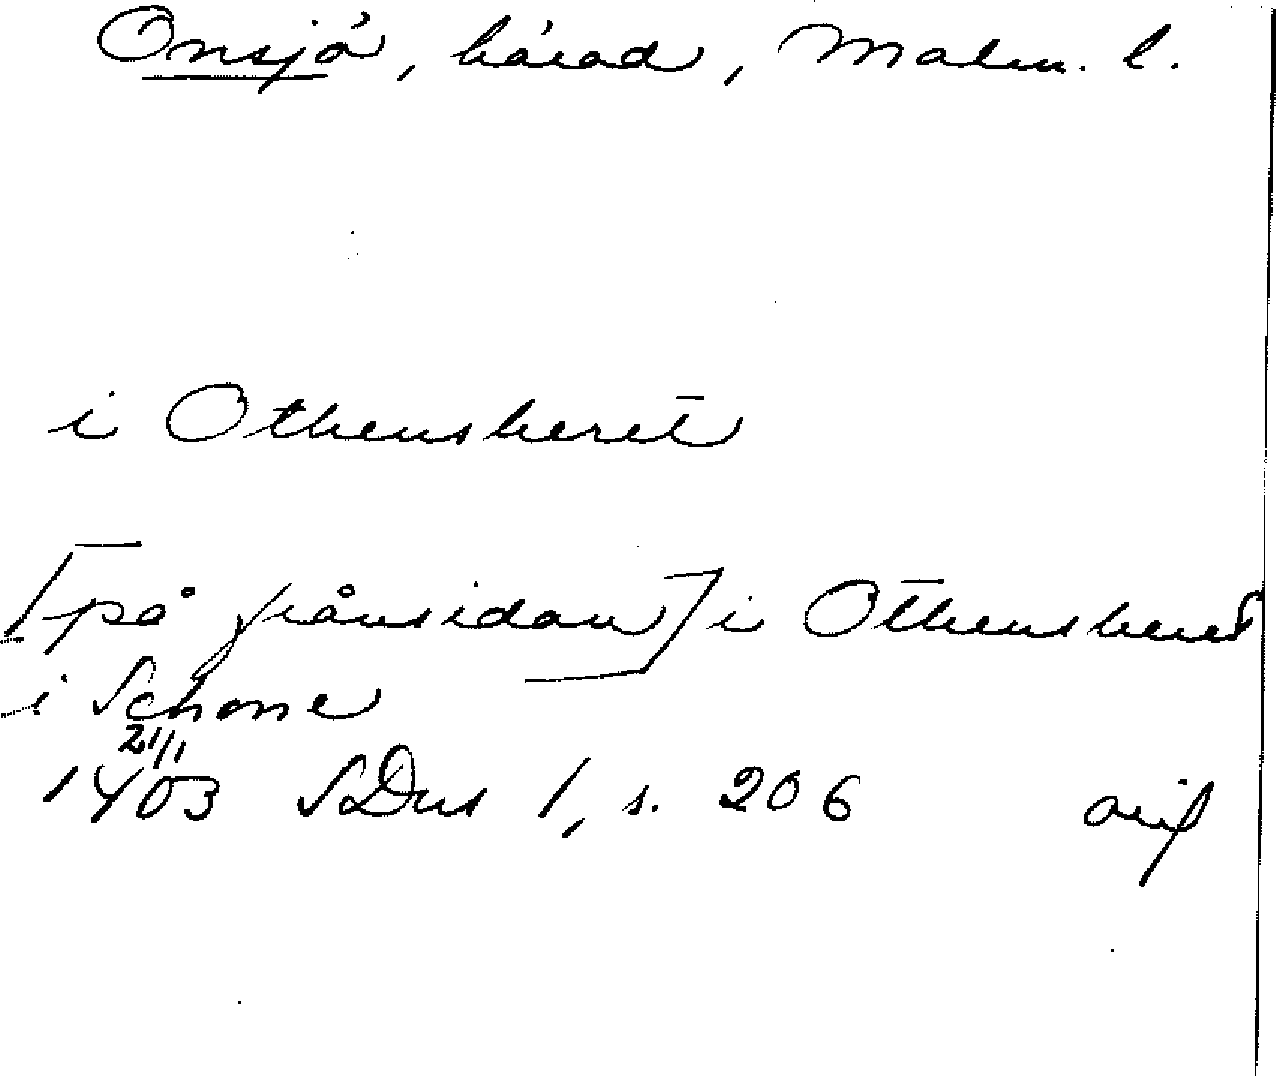 Onsjö, härad, Malm. l.
i Othensheret
[på frånsidan] i Othensheret
i Schone
21/1
1403 SDns 1, s. 206 orig